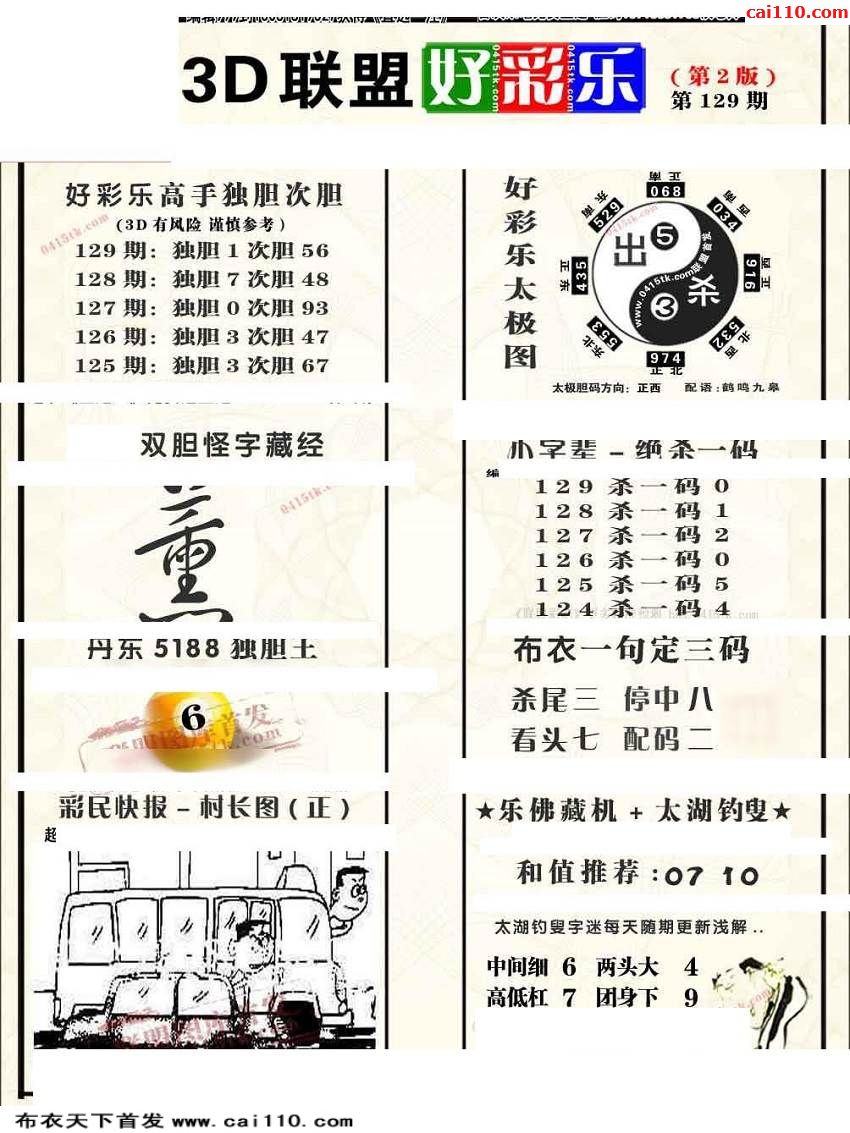 cai110.com
3D联盟好彩乐
0415tk.com 0415tk.com 0415tk.com
(第2版)
第129期
好彩乐高手独胆次胆
(3D有风险 谨慎参考)
0415tk.com
129期：独胆1次胆56
128期：独胆7次胆48
127期：独胆0次胆93
126期：独胆3次胆47
125期：独胆3次胆67
好彩乐太极图
正南 068
东南 529
西南 034
正东 435
正西 916
东北 553
西北 532
974 正北
出 5
杀 3
0415tk.com
www.0415tk.com联盟首发
太极胆码方向：正西 配语：鹤鸣九皋
双胆怪字藏经
0415tk.com
薰
小字辈－绝杀一码
编
129杀一码0
128杀一码1
127杀一码2
126杀一码0
125杀一码5
124杀一码4
丹东5188独胆王
6
布衣一句定三码
杀尾三 停中八
看头七 配码二
彩民快报－村长图(正)
超
★乐佛藏机+太湖钓叟★
和值推荐:07 10
太湖钓叟字迷每天随期更新浅解..
中间细 6 两头大 4
高低杠 7 团身下 9
0415tk.com
布衣天下首发 www.cai110.com